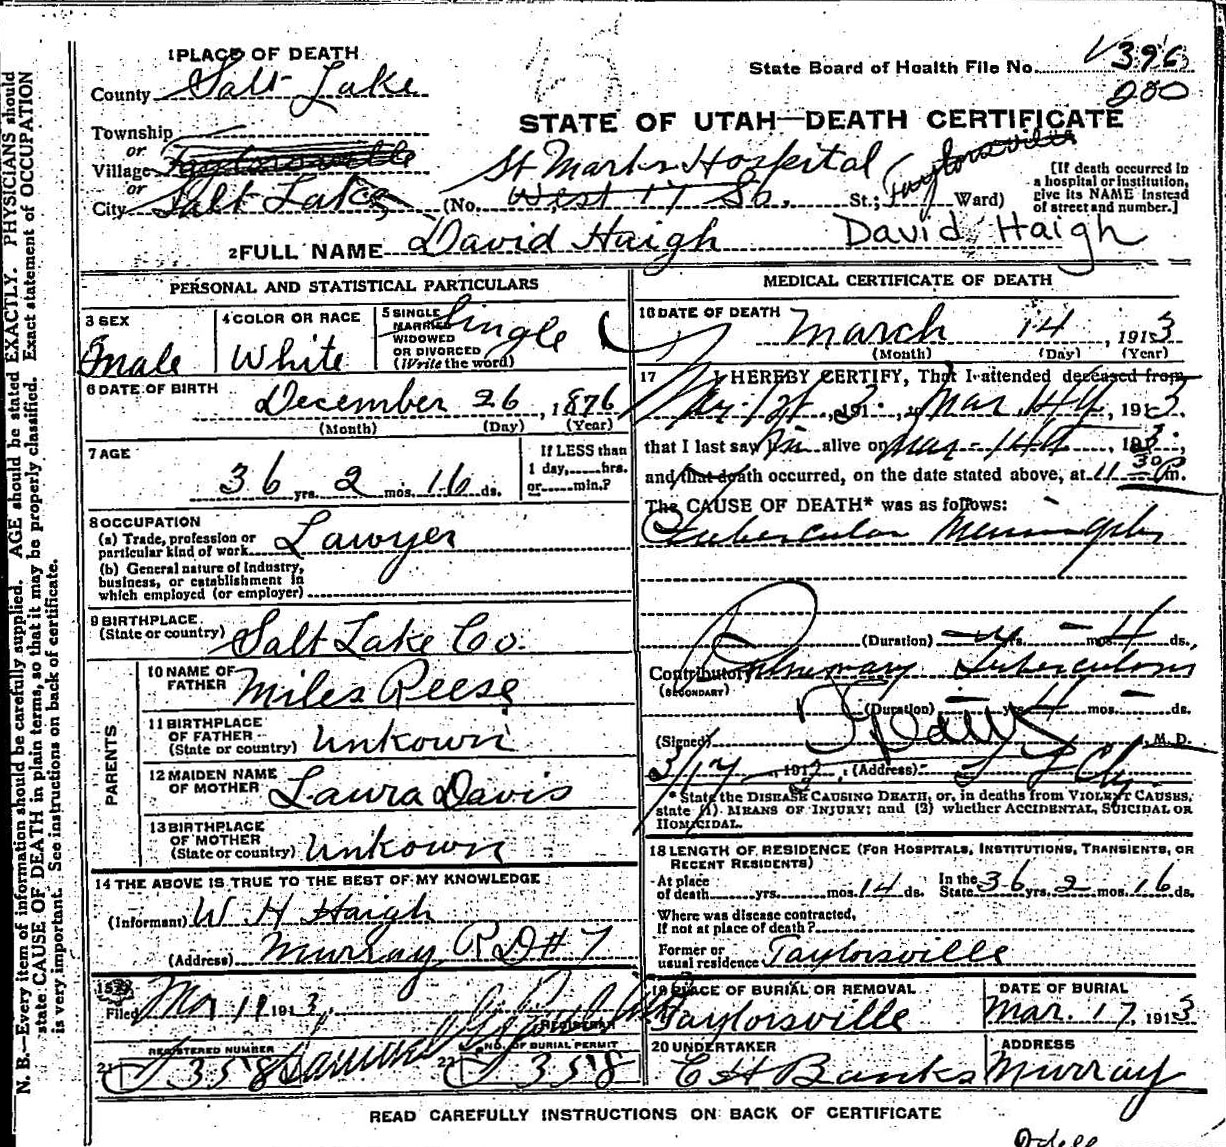 1 PLACE OF DEATH
County Salt Lake
Township
or
Village Taylorsville
or
City Salt Lake
State Board of Health File No. 396
200
STATE OF UTAH—DEATH CERTIFICATE
St Marks Hospital
(No. West 17 So. St.; Taylorsville Ward)
[If death occurred in
a hospital or institution,
give its NAME instead
of street and number.]
2 FULL NAME David Haigh David Haigh
PERSONAL AND STATISTICAL PARTICULARS
3 SEX
male
4 COLOR OR RACE
White
5 SINGLE
MARRIED
WIDOWED
OR DIVORCED
(Write the word)
Single
6 DATE OF BIRTH
December 26, 1876
(Month) (Day) (Year)
7 AGE
36 yrs. 2 mos. 16 ds.
If LESS than
1 day,......hrs.
or......min.?
8 OCCUPATION
(a) Trade, profession or
particular kind of work Lawyer
(b) General nature of industry,
business, or establishment in
which employed (or employer)
9 BIRTHPLACE
(State or country) Salt Lake Co.
PARENTS
10 NAME OF
FATHER Miles Reese
11 BIRTHPLACE
OF FATHER
(State or country) Unkown
12 MAIDEN NAME
OF MOTHER Laura Davis
13 BIRTHPLACE
OF MOTHER
(State or country) Unkown
14 THE ABOVE IS TRUE TO THE BEST OF MY KNOWLEDGE
(Informant) W H Haigh
(Address) Murray R D # 7
15
Filed Mar 1913
REGISTRAR
REGISTERED NUMBER
21 358
NO. OF BURIAL PERMIT
22 358
MEDICAL CERTIFICATE OF DEATH
16 DATE OF DEATH
March 14, 1913
(Month) (Day) (Year)
17 I HEREBY CERTIFY, That I attended deceased from
Mar 1st, 1913, Mar 14th, 1913
that I last saw him alive on Mar 14th, 1913
and that death occurred, on the date stated above, at 11 30 P m.
The CAUSE OF DEATH* was as follows:
Tubercular Meningitis
(Duration) yrs. mos. 4 ds.
Contributory Pulmonary Tuberculosis
(SECONDARY)
(Duration) yrs. 4 mos. ds.
(Signed) , M. D.
3/17, 191 (Address)
* State the DISEASE CAUSING DEATH, or, in deaths from VIOLENT CAUSES,
state (1) MEANS OF INJURY; and (2) whether ACCIDENTAL, SUICIDAL OR
HOMICIDAL.
18 LENGTH OF RESIDENCE (FOR HOSPITALS, INSTITUTIONS, TRANSIENTS, OR
RECENT RESIDENTS)
At place
of death......yrs......mos. 14 ds. In the
State 36 yrs. 2 mos. 16 ds.
Where was disease contracted,
If not at place of death?
Former or
usual residence Taylorsville
19 PLACE OF BURIAL OR REMOVAL
Taylorsville
DATE OF BURIAL
Mar. 17, 1913
20 UNDERTAKER
C H Banks
ADDRESS
Murray
READ CAREFULLY INSTRUCTIONS ON BACK OF CERTIFICATE
N. B.—Every item of information should be carefully supplied. AGE should be stated EXACTLY. PHYSICIANS should
state CAUSE OF DEATH in plain terms, so that it may be properly classified. Exact statement of OCCUPATION
is very important. See instructions on back of certificate.